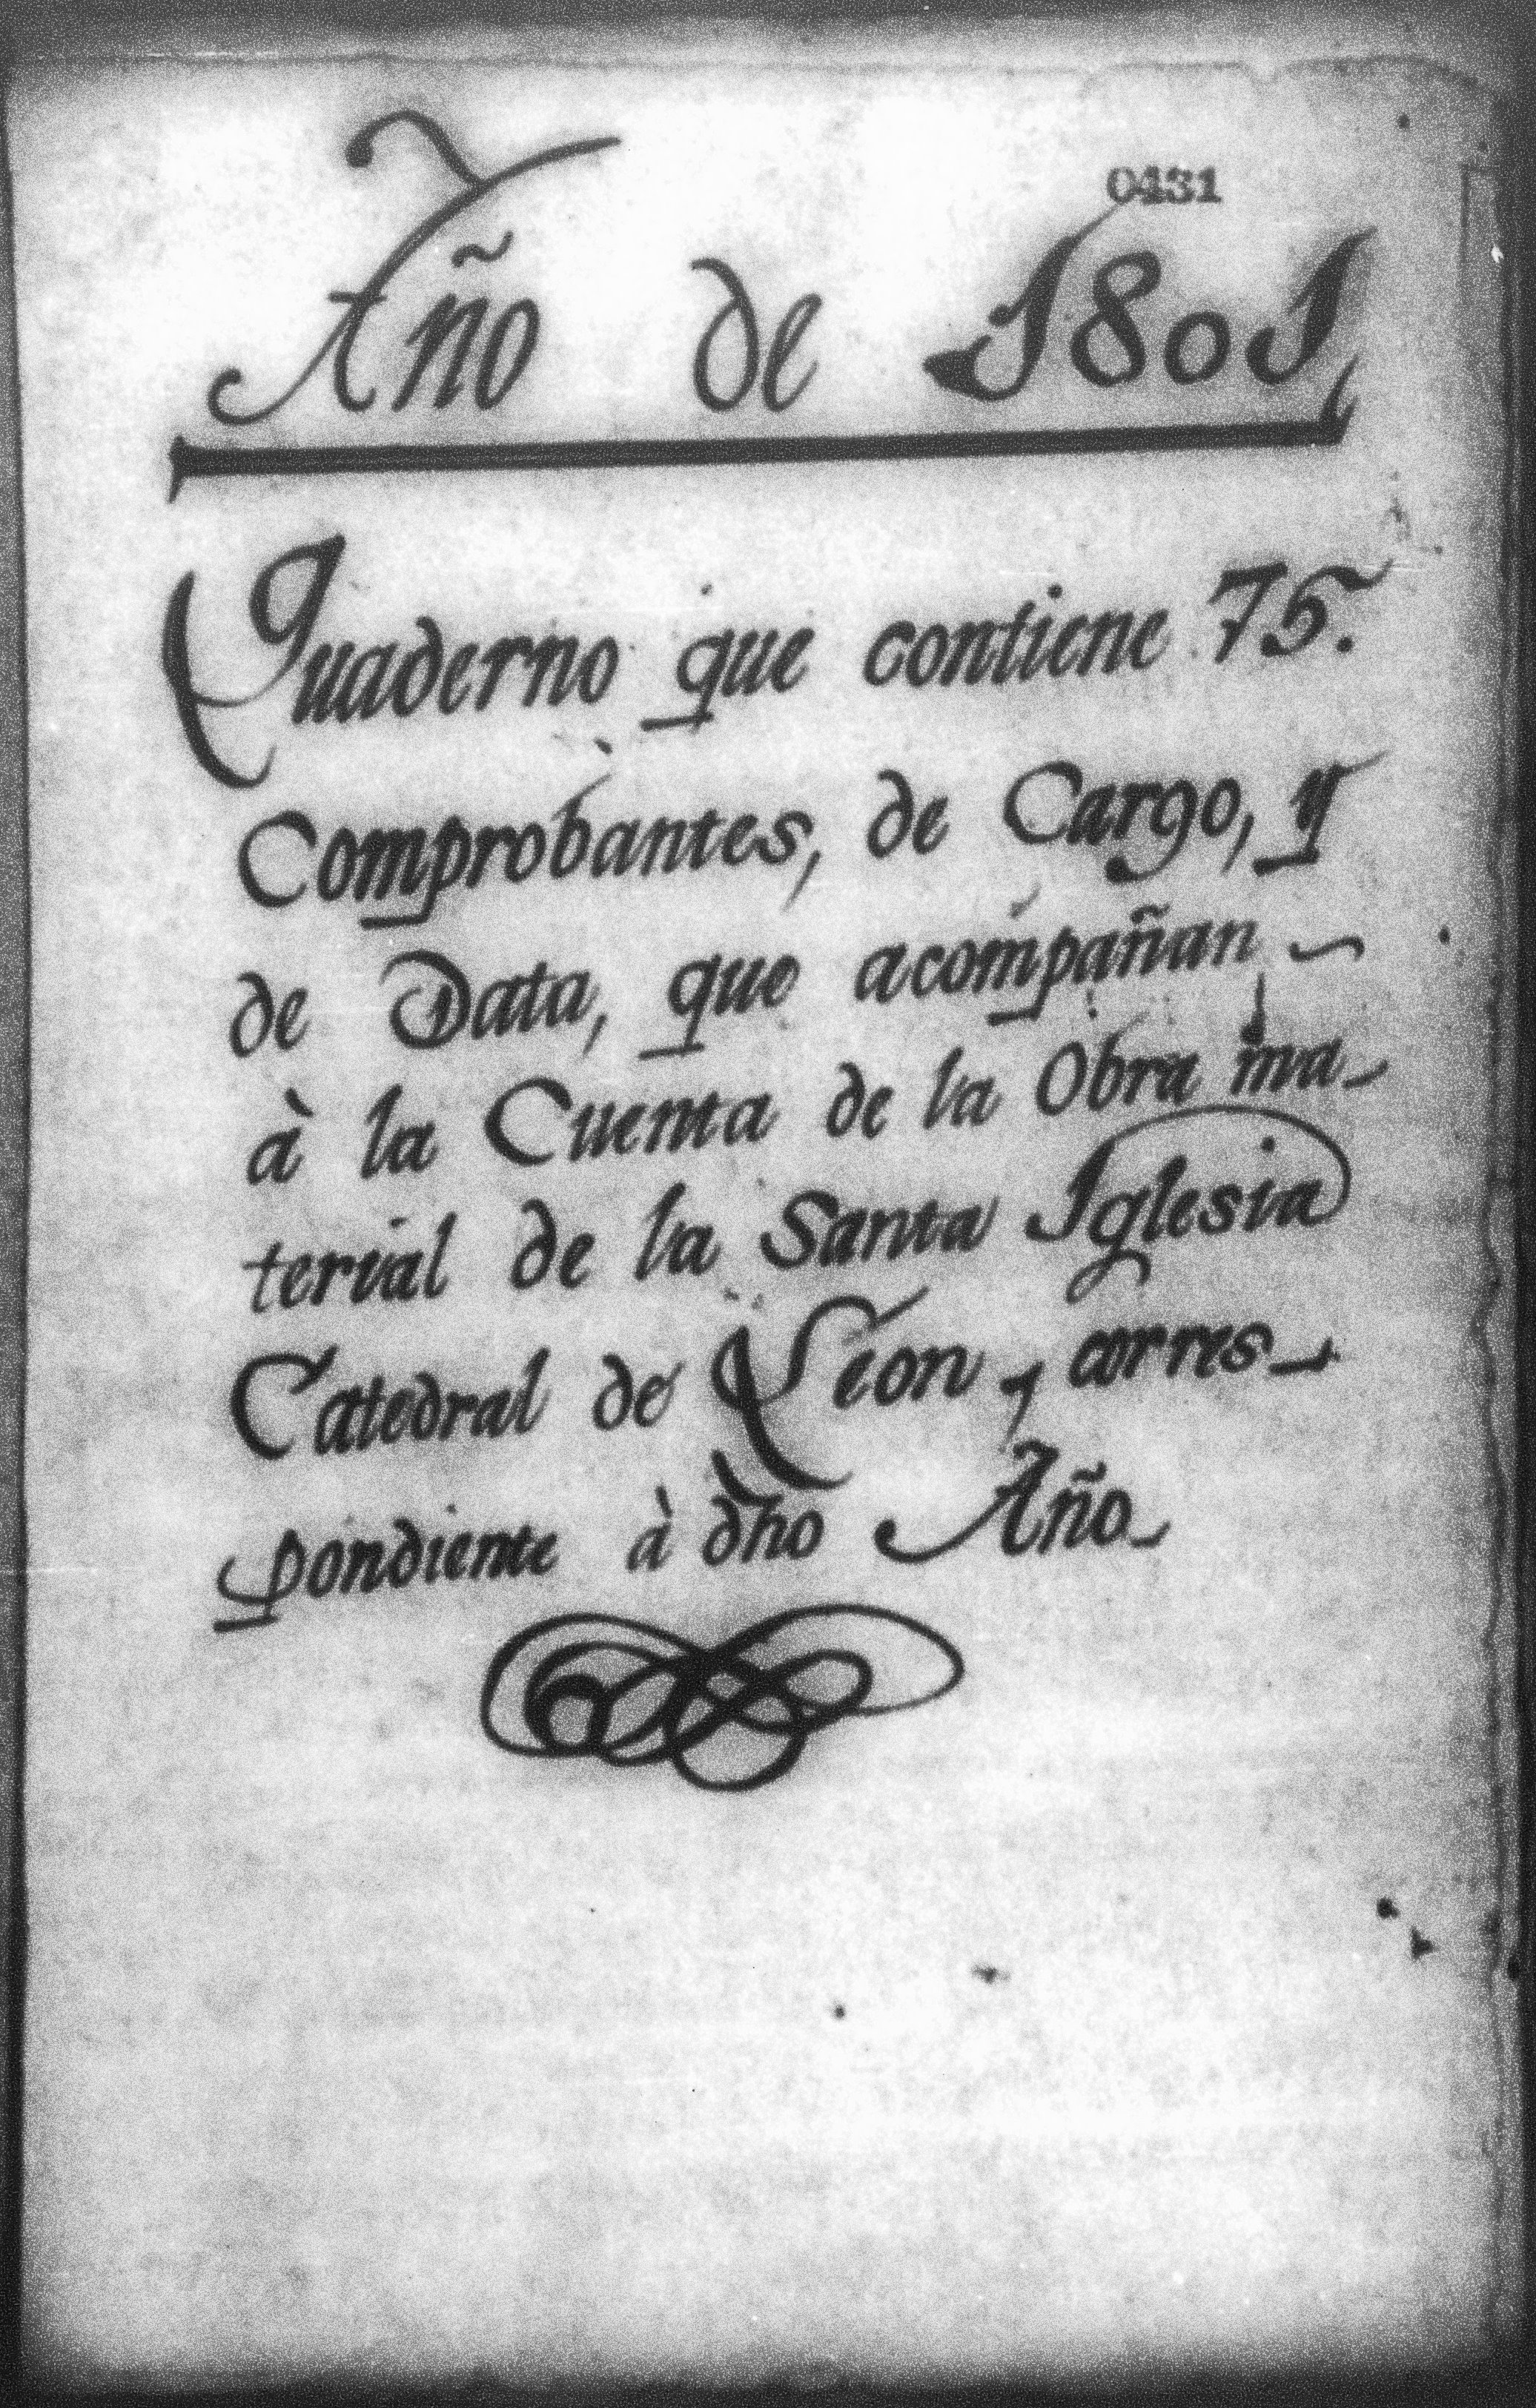 0431
Año de 1801
Quaderno que contiene 75.
Comprobantes, de Cargo, y
de Data, que acompañan
à la Cuenta de la Obra ma-
terial de la Santa Iglesia
Catedral de Leon, corres-
pondiente à dho Año